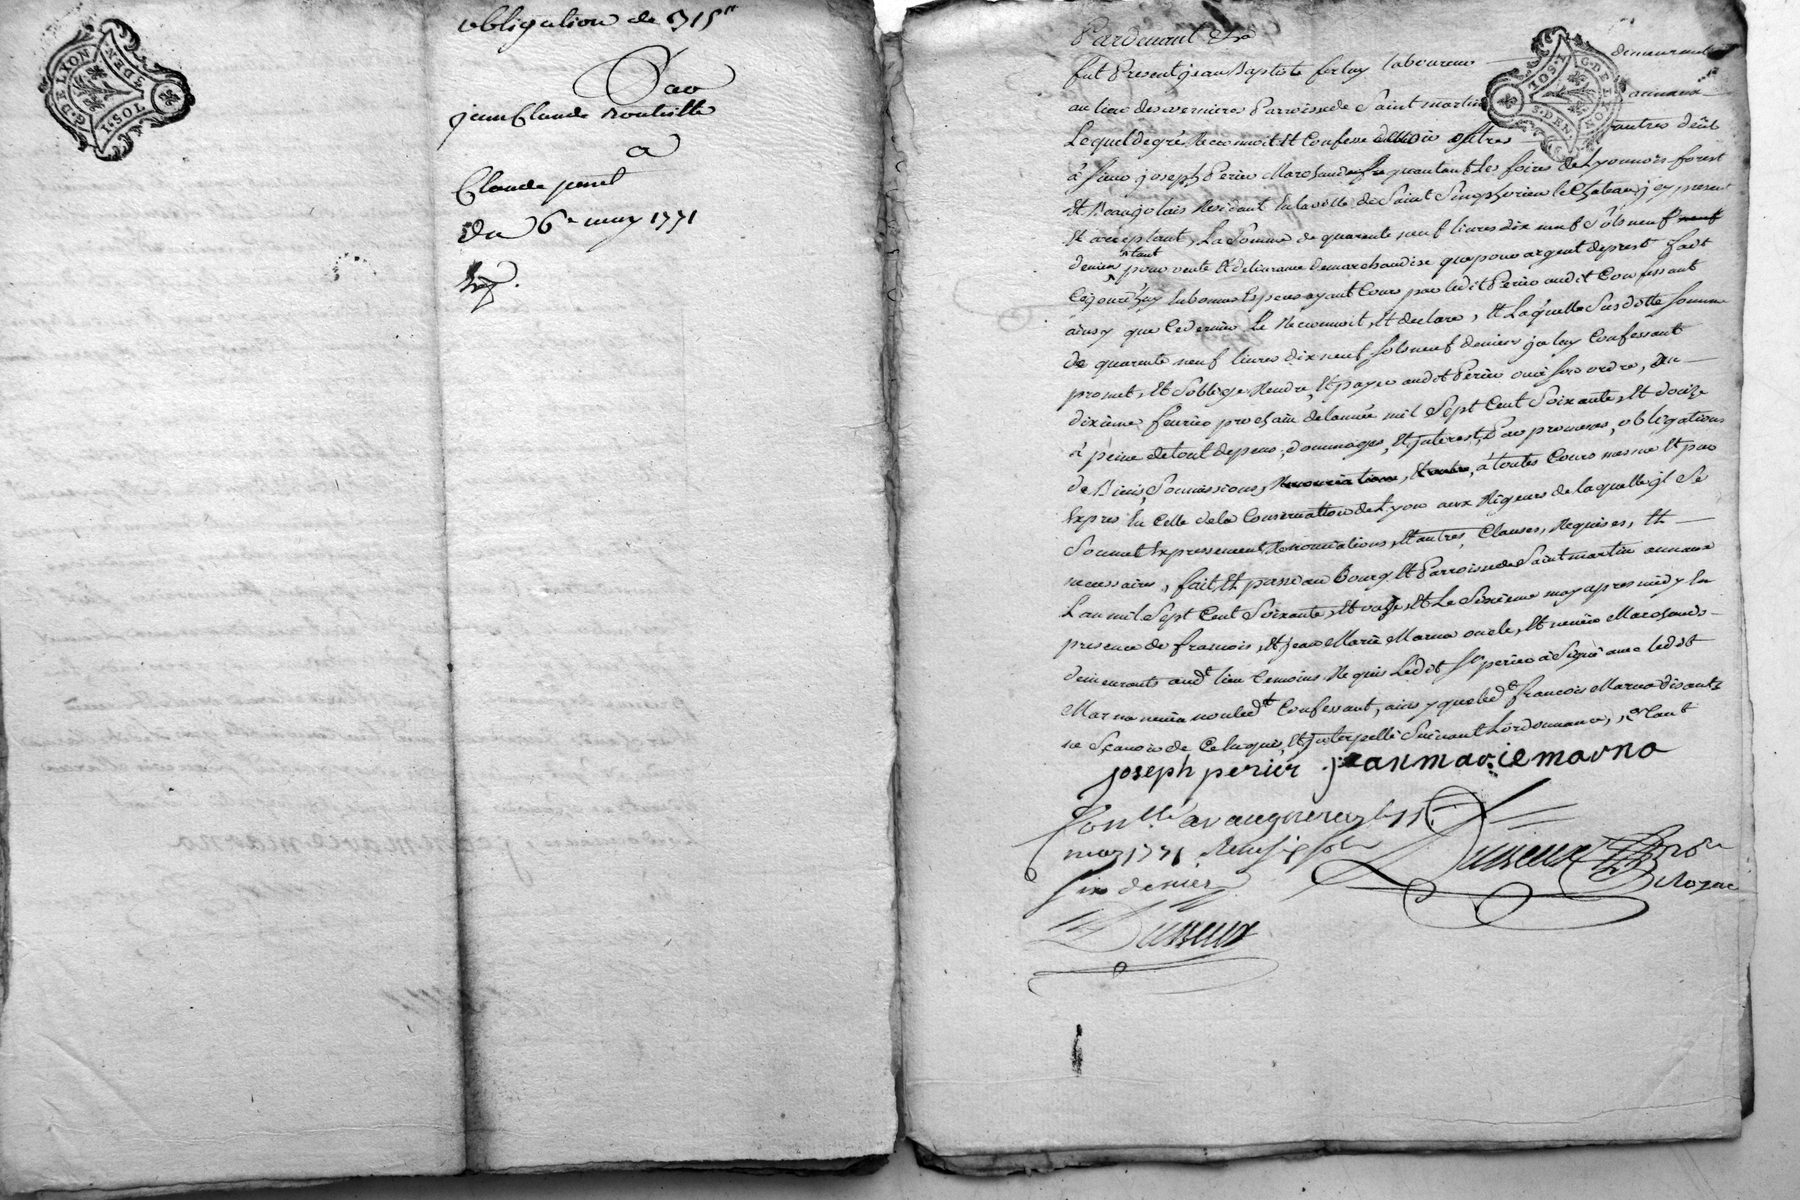 obligation de 315 ^tt
Par
jean Claude
a
Claude
Du 6e may 1771
G. DE LYON
1. SOL
DEN
Pardevant &a
fut Present jean Baptiste ferlay laboureur demeurant
au lieu des vernieres Parroisse de Saint martin annaux
Lequel de gré Reconnoit Et Confesse devoir autres deub
à Sieur joseph Perier Marchand frequantant Les foires de Lyonnois forest
Et Beaujolais Residant En la ville de Saint Simphorien le Chateau jcy present
Et acceptant, La Somme de quarente neuf livres dix neuf Sols neuf neuf
deniers tant pour vente Et delivrance de marchandise que pour argent de prest fait
Cejourd'huy En bonnes Especes ayant Cours par ledit Perier audit Confessant
ainsy que Ce dernier Le Reconnoit, Et declare, Et Laquelle Susditte Somme
de quarente neuf livres dix neuf Sols neuf deniers jceluy Confessant
promet, Et Soblige Rendre, Et payer audit Perier ou à son ordre, Au
dixieme fevrier prochain de lannée mil Sept Cent Soixante, Et douze
à peine de tout depens, dommages, Et jnterest, Par promesses, obligations
de Biens, Soumissions, Renonciations, à toutes Cours mesme Et par
Expres En Celle de la Conservation de Lyon aux Rigeurs de laquelle jl Se
Soumet Expressement Renonciations, Et autres Clauses, Requises, Et
necessaires, fait Et passé au Bourg Et Parroisse de Saint martin annaux
Lan mil Sept Cent Soixante, Et onze, Et Le Sixieme may apres midy En
presence de francois, Et jean Marie Marna oncle, Et neveu Marchands
demeurants audt. lieu temoins Requis Ledit Sr perier à Signé avec ledit
Marna neveu non ledt. Confessant, ainsy que led. francois Marna disants
ne Sçavoir de Ce Requis, Et jnterpellé Suivant Lordonnance,
joseph perier jean marie marna
G. DE LYON
1. SOL
DEN
Conllé a
may 1771. Reçu Sols
six deniers
Dusseux
Dusseux